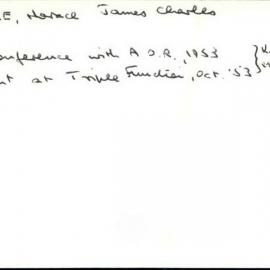 E, Horace James Charles
onference with A.O.R., 1953
nt at Triple Function, Oct. '53